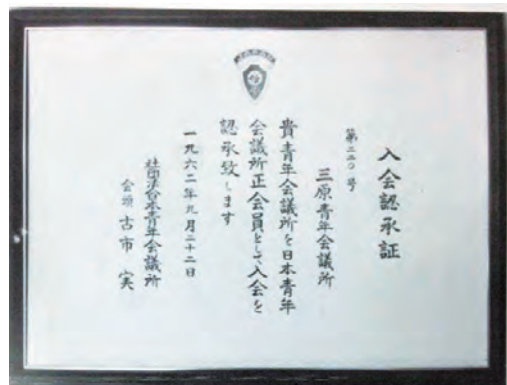 入会認承証
第二二〇号
三原青年会議所
貴青年会議所を日本青年
会議所正会員として入会を
認承致します
一九六二年九月二十二日
社団法人日本青年会議所
会頭 古市 実